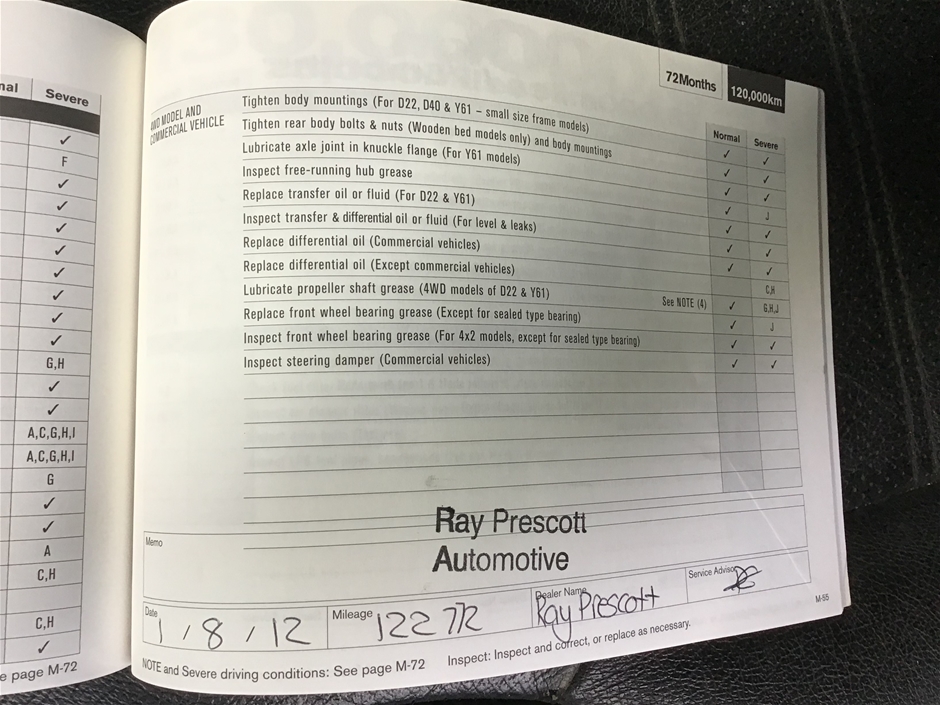 nal Severe
✓
F
✓
✓
✓
✓
✓
✓
✓
✓
G,H
✓
✓
A,C,G,H,I
A,C,G,H,I
G
✓
✓
A
C,H
C,H
✓
e page M-72
72Months 120,000km
4WD MODEL AND
COMMERCIAL VEHICLE
Normal Severe
Tighten body mountings (For D22, D40 & Y61 – small size frame models) ✓ ✓
Tighten rear body bolts & nuts (Wooden bed models only) and body mountings ✓ ✓
Lubricate axle joint in knuckle flange (For Y61 models) ✓ ✓
Inspect free-running hub grease ✓ J
Replace transfer oil or fluid (For D22 & Y61) ✓ ✓
Inspect transfer & differential oil or fluid (For level & leaks) ✓ ✓
Replace differential oil (Commercial vehicles) ✓ ✓
Replace differential oil (Except commercial vehicles) C,H
Lubricate propeller shaft grease (4WD models of D22 & Y61) See NOTE (4) ✓ G,H,J
Replace front wheel bearing grease (Except for sealed type bearing) ✓ J
Inspect front wheel bearing grease (For 4x2 models, except for sealed type bearing) ✓ ✓
Inspect steering damper (Commercial vehicles) ✓ ✓
Memo
Ray Prescott
Automotive
Date 1 / 8 / 12 Mileage 122772 Dealer Name Ray Prescott Service Advisor
NOTE and Severe driving conditions: See page M-72 Inspect: Inspect and correct, or replace as necessary.
M-55